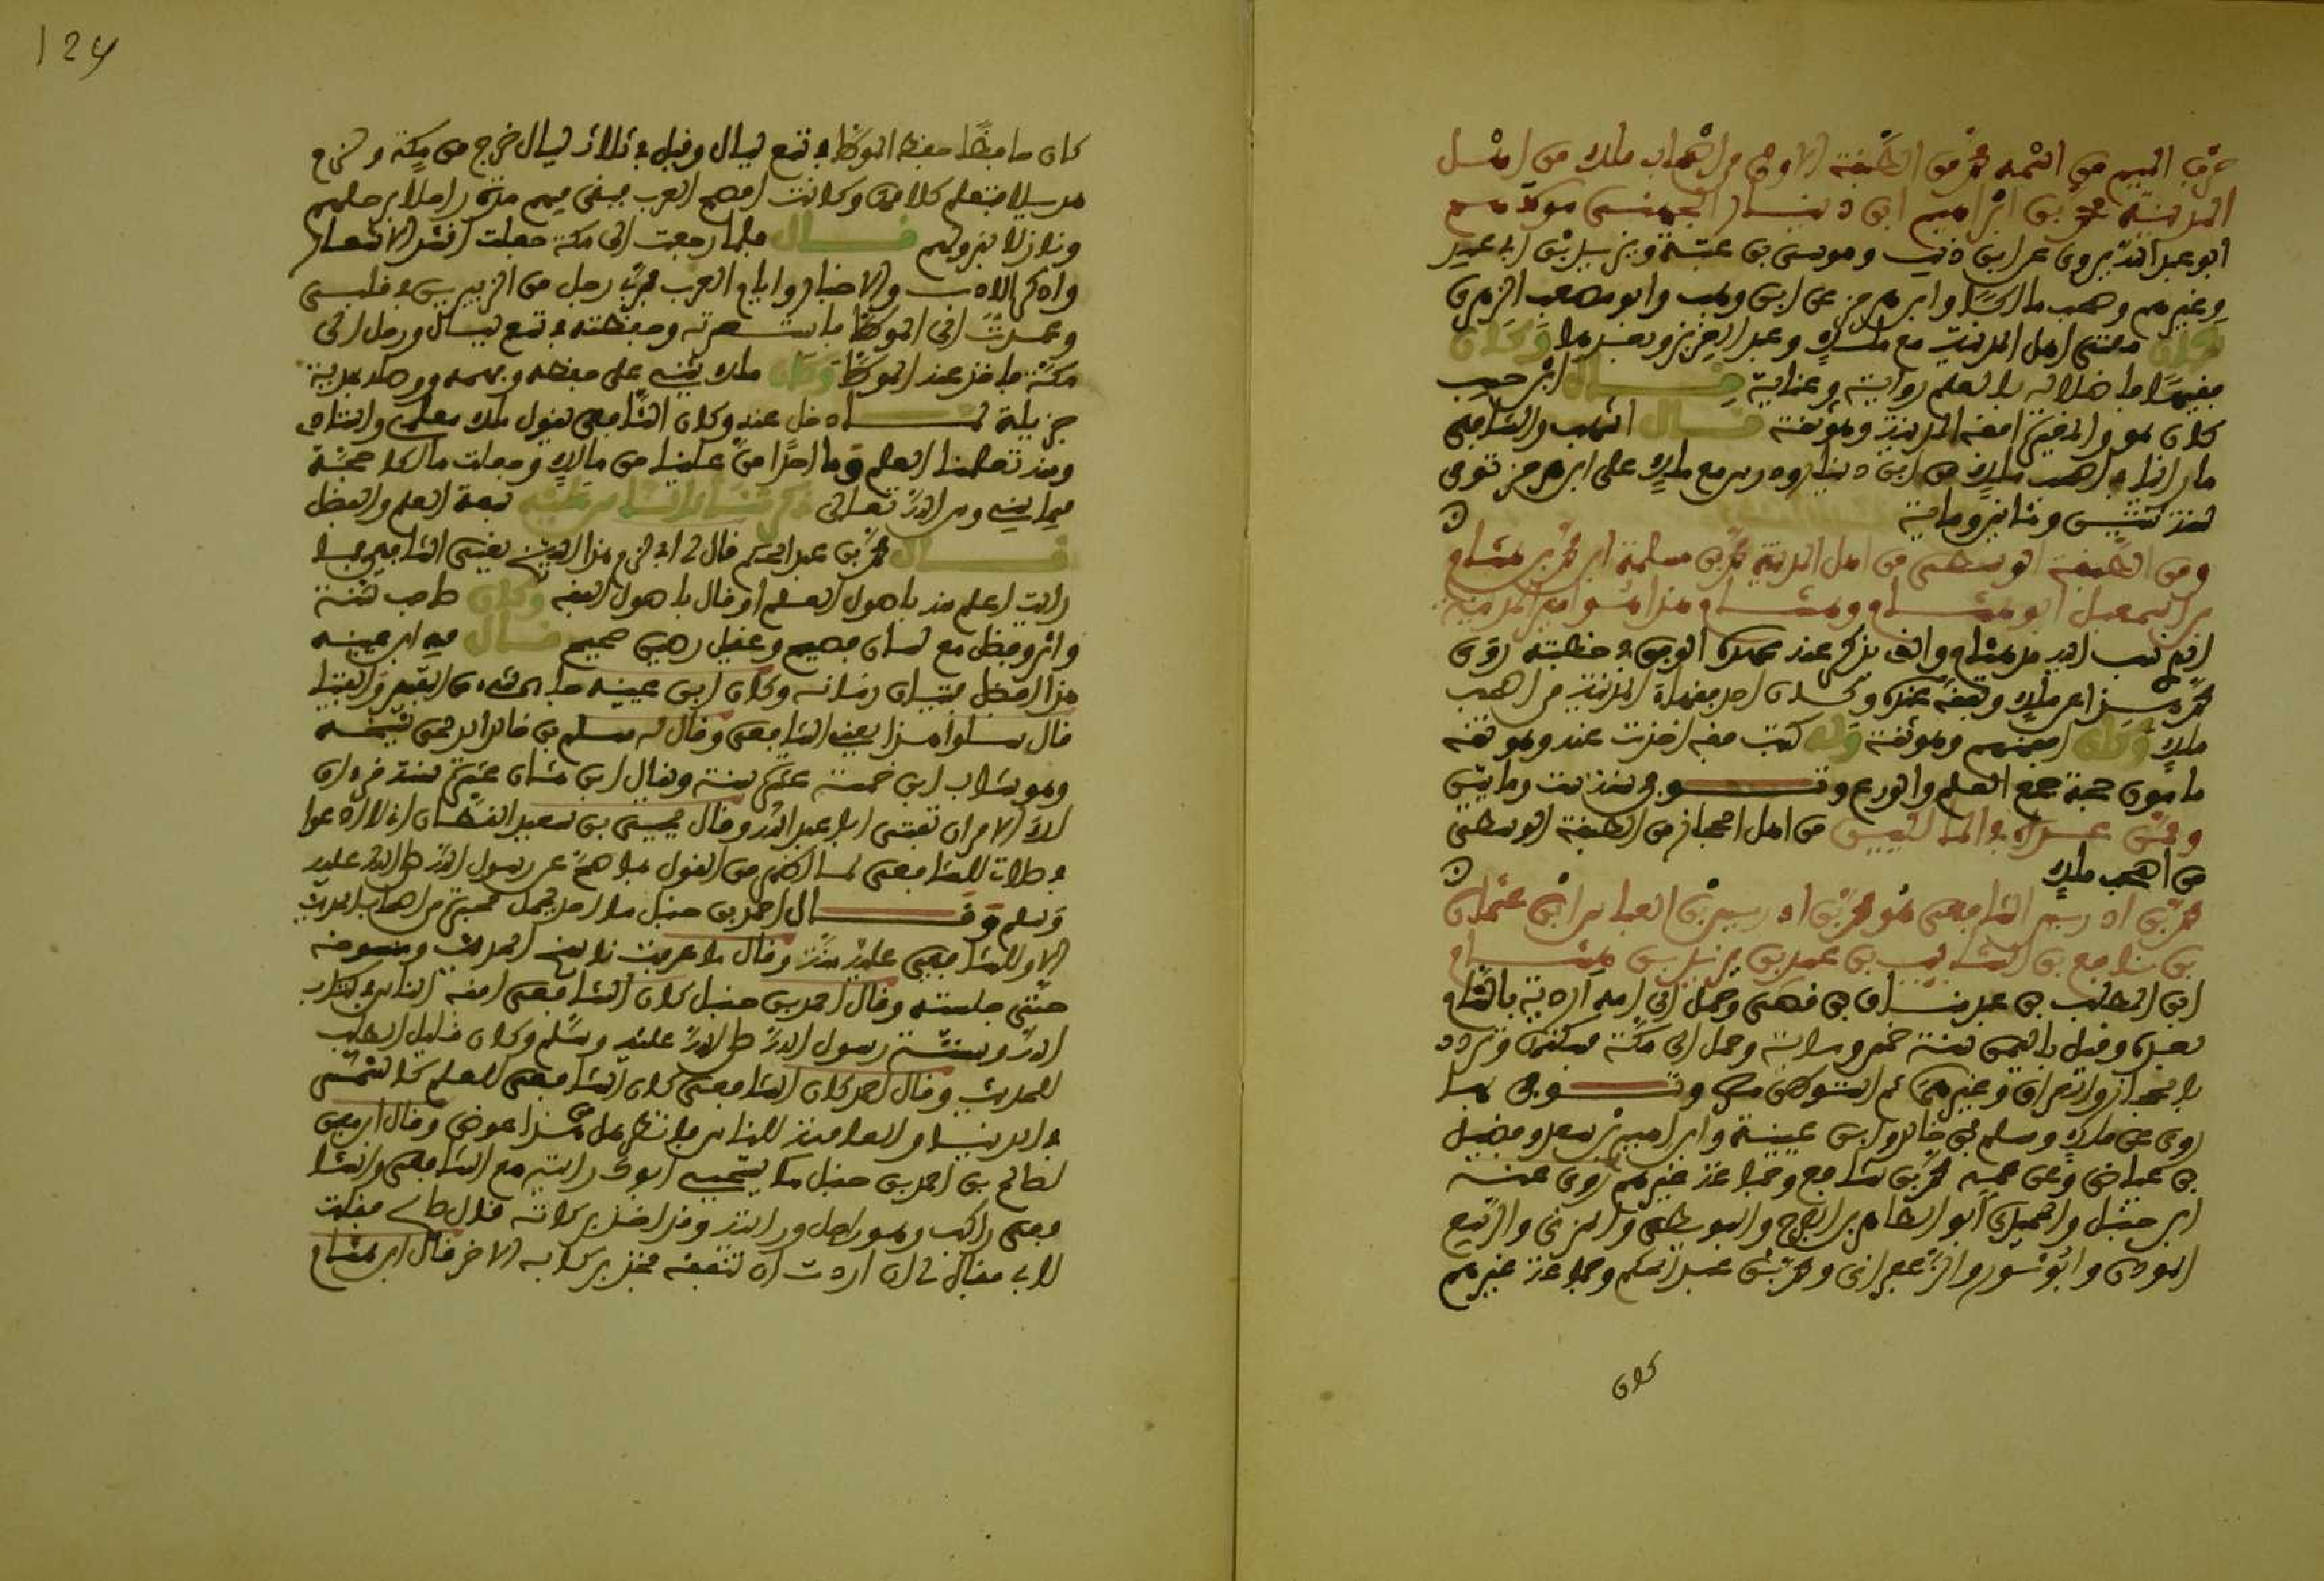 حرف الميم من اسمه محمد من الطبقة الاولى من اصحاب ملك من اهل
المدينة محمد بن ابراهيم ابن دينار الجهني مولاهم
ابو عبد الله يروي عن ابن ذيب وموسى بن عقبة ويزيد بن ابي عبيد
وغيرهم وصحب مالكا وابن هرمز عنه ابن وهب وابو مصعب الزهري
وكان مفتي اهل المدينة مع ملك وعبد العزيز وبعدهما وكان
فقيها فاضلا له بالعلم رواية وعناية قال ابن حبيب
كان هو والمغيرة افقه المدينة وهو ثقة قال اشهب والشافعي
ما راينا في اصحاب ملك من ابن دينار ودرس مع ملك على ابن هرمز توفي
سنة ثنتين وثمانين وماية
ومن الطبقة الوسطى من اهل المدينة محمد بن مسلمة ابن محمد بن هشام
بن اسمعيل ابو هشام وهشام هذا هو امير المدينة
اليه نسب مد هشام والذي يذكر عنه عهدة الوحي في خطبته روى
محمد هذا عن ملك وتفقه عنده وكان احد فقهاء المدينة من اصحاب
ملك وكان افقههم وهو ثقة وله كتب فقه اخذت عنه وهو ثقة
مامون حجة جمع العلم والورع وتوفي سنة ست ومايتين
وممن عد في المالكيين من اهل الحجاز من الطبقة الوسطى
من اصحاب ملك
محمد بن ادريس الشافعي هو محمد بن ادريس بن العباس ابن عثمان
بن شافع بن السايب بن عبيد بن عبد يزيد بن هشام
ابن المطلب بن عبد مناف بن قصي وحمل الى امه ازدية بالشام
بغزة وقيل باليمن سنة خمسين وماية وحمل الى مكة فسكنها وتردد
بالحجاز والعراق وغيرهما ثم استوطن مصر وتوفي بها
روى عن ملك ومسلم بن خالد وابن عيينة وابراهيم بن سعد وفضيل
بن عياض وعن عمه محمد بن شافع وجماعة غيرهم روى عنه
ابن حنبل والحميدي ابو الطاهر بن السرح والبويطي والمزني والربيع
المودن وابو ثور والزعفراني ومحمد بن عبد الحكم وجماعة غيرهم
كان
124
كان حافظا حفظ الموطا في تسع ليال وقيل في ثلاث ليال خرج من مكة ولزم
هذيلا فتعلم كلامها وكانت افصح العرب فبقي فيهم مدة راحلا برحلهم
ونازلا بنزولهم قال فلما رجعت الى مكة جعلت انشد الاشعار
واذكر الاداب والاخبار وايام العرب فمر بي رجل من الزبيريين
وعمدت الى الموطا فاستعرته وحفظته في تسع ليال ورحل الى
ملك فاخذ عنه الموطا وكان ملك يثني على حفظه وفهمه ووصله بهدية
جزيلة لما رحل عنه وكان الشافعي يقول ملك معلمي واستاذي
ومنه تعلمنا العلم وما احد امن علينا من مالك وجعلت مالكا حجة
فيما بيني وبين الله تعالى ذكر ثناء الناس عليه بسعة العلم والفضل
قال محمد بن عبد الحكم قال لي ابي الزم هذا الشيخ يعني الشافعي فما
رايت اعلم منه باصول العلم او قال باصول الفقه وكان صاحب سنة
واثر وفضل مع لسان فصيح وعقل رصين صحيح قال فيه ابن عيينة
هذا افضل فتيان زمانه وكان ابن عيينة اذا جاءه شيء من التفسير والفتيا
قال سلوا هذا يعني الشافعي وقال له مسلم بن خالد الزنجي شيخه
وهو شاب ابن خمسة عشر سنة ويقال ابن ثمان عشرة سنة قد ان
لك ان تفتي ابا عبد الله وقال يحيى بن سعيد القطان اني لادعوا
في صلاتي للشافعي لما اظهر من القول بما صح عن رسول الله صلى الله عليه
وسلم وقال احمد بن حنبل ما احد يحمل محبرة من اصحاب الحديث
الا وللشافعي عليه منة وقال ما عرفت ناسخ الحديث ومنسوخه
حتى جالسته وقال احمد بن حنبل كان الشافعي افقه الناس في كتاب
الله وسنة رسول الله صلى الله عليه وسلم وكان قليل الطلب
للحديث وقال احمد كان الشافعي كان الشافعي للعلم كالشمس
في الدنيا والعافية للناس فانظر هل من هذا عوض وقال ابن معين
لصالح بن احمد بن حنبل ما يستحيي ابوك رايته مع الشافعي والشا
فعي راكب وهو راجل ورايته وقد اخذ بركابه قال صالح فقلت
لابي فقال لي ان اردت ان تتفقه فخذ بركابه الاخر قال ابن هشام